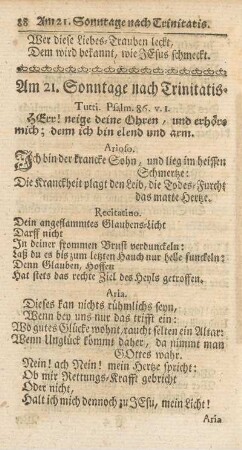 88 Am 21. Sonntage nach Trinitatis.
Wer diese Liebes-Trauben leckt,
Dem wird bekannt, wie JEsus schmeckt.
Am 21. Sonntage nach Trinitatis.
Tutti. Psalm. 86. v. 1.
HErr! neige deine Ohren, und erhöre
mich; denn ich bin elend und arm.
Arioso.
Ich bin der krancke Sohn, und lieg im heissen
Schmertze:
Die Kranckheit plagt den Leib, die Todes-Furcht
das matte Hertze.
Recitativo.
Dein angeflammtes Glaubens-Licht
Darff nicht
In deiner frommen Brust verdunckeln:
Laß du es bis zum letzten Hauch nur helle funckeln:
Denn Glauben, Hoffen
Hat stets das rechte Ziel des Heyls getroffen.
Aria.
Dieses kan nichts rühmlichs seyn,
Wenn bey uns nur das trifft ein:
Wo gutes Glücke wohnt, raucht selten ein Altar:
Wenn Unglück kömmt daher, da nimmt man
GOttes wahr.
Nein! ach Nein! mein Hertze spricht:
Ob mir Rettungs-Krafft gebricht
Oder nicht,
Halt ich mich dennoch zu JEsu, mein Licht!
Aria